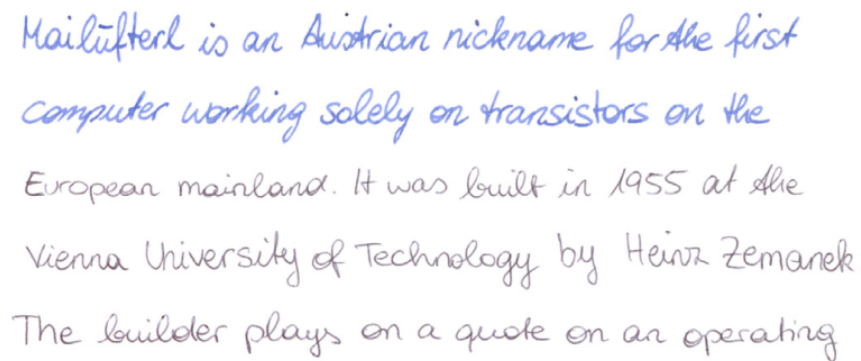 Mailüfterl is an Austrian nickname for the first
computer working solely on transistors on the
European mainland. It was built in 1955 at the
Vienna University of Technology by Heinz Zemanek
The builder plays on a quote on an operating